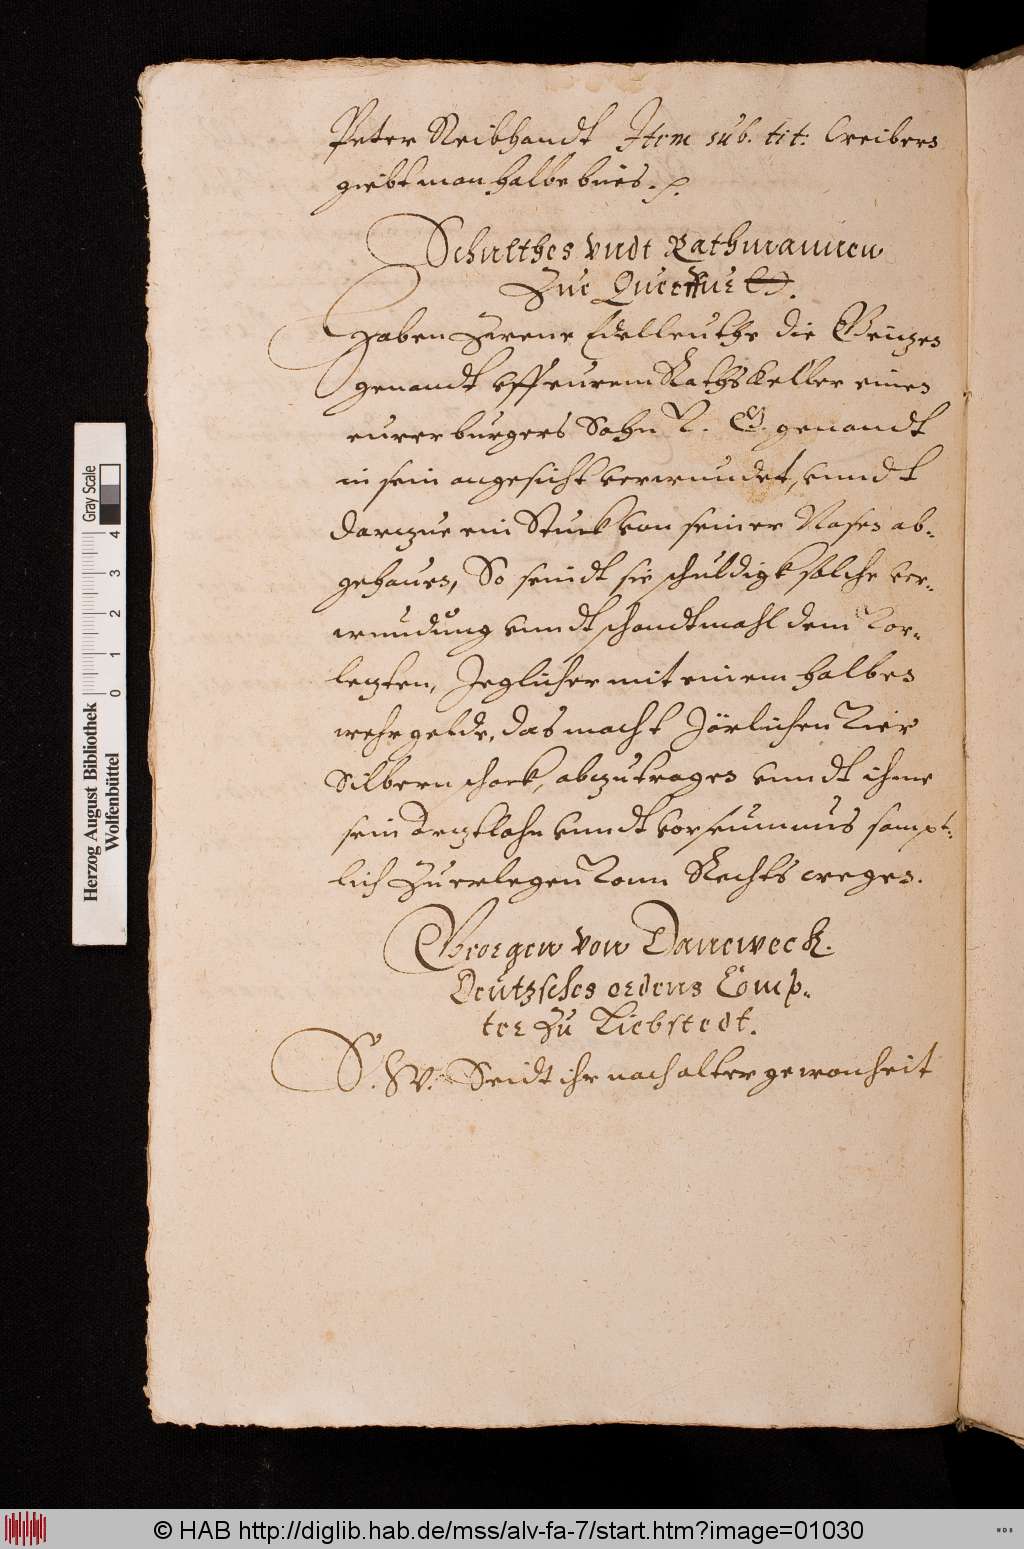 Peter Reibhandt Item sub. tit. Creibers
giebt man halbe bues. p.
Schulthes vndt Rathmannen
Zue Querffurt.
Haben Zwene Edelleuthe die
genandt vff eurem Rathskeller eines
eurer burgers Sohn N. E. genandt
in sein angesicht verwundet, vnndt
darzue ein Stuck von seiner Nasen ab-
gehauen, So seindt sie schuldigk solche ver-
wundung vnndt schandtmahl dem Vor-
lezten, Jeglicher mit einem halben
wehrgelde, das macht Jörlichen Vier
Silbern schock, abzutragen vnndt ihme
sein Arztlohn vnndt vorseumnus sampt-
lich Zu erlegen Vonn Rechts wegen.
Georgen von Daneweck.
Deutzsches ordens Comp-
ter Zu Liebstedt.
S. W. Seidt ihr nach alter gewonheit
Herzog August Bibliothek
Wolfenbüttel
Gray Scale
0 1 2 3 4
© HAB http://diglib.hab.de/mss/alv-fa-7/start.htm?image=01030